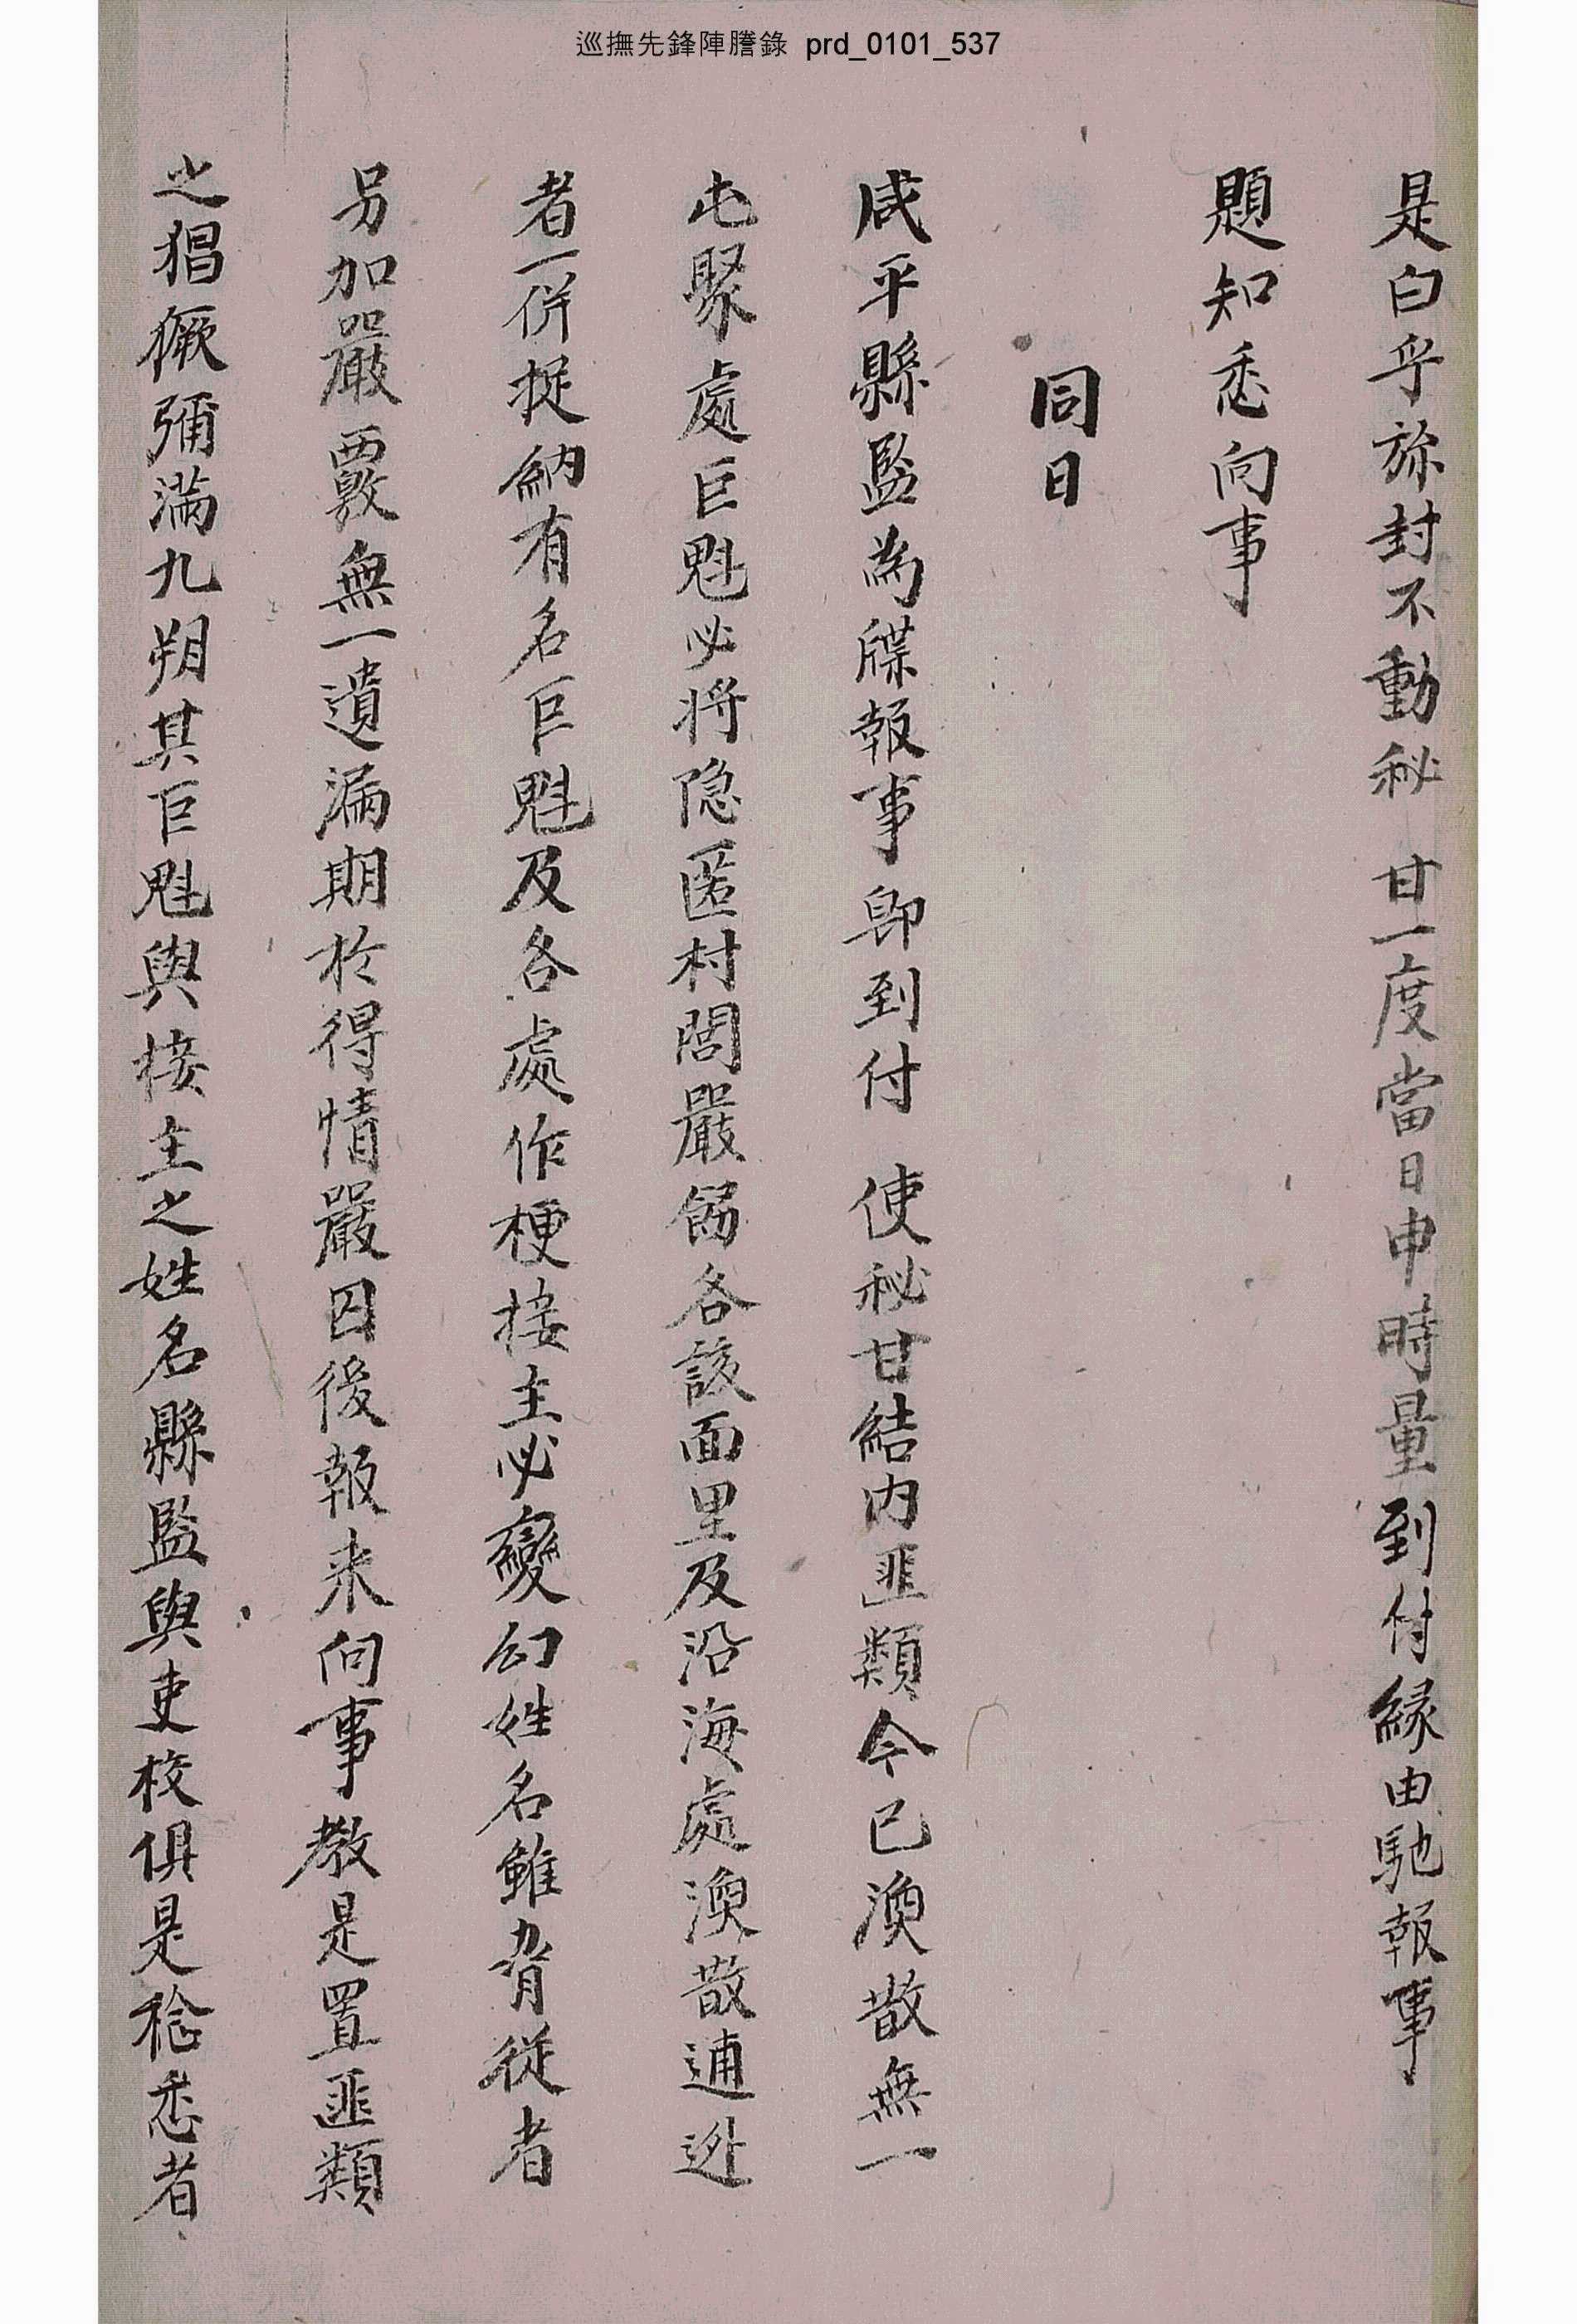 巡撫先鋒陣謄錄 prd_0101_537
是白乎旀封不動秘 甘一度當日申時量到付緣由馳報事
題知悉向事
同日
咸平縣監為牒報事卽到付 使秘甘結內匪類今已渙散無一
屯聚處巨魁必將隐匿村閭嚴飭各該面里及沿海處渙散逋逃
者一併捉納有名巨魁及各處作梗接主必變幻姓名雖脅從者
另加嚴覈無一遺漏期於得情嚴囚後報来向事教是置匪類
之猖獗彌滿九朔其巨魁與接主之姓名縣監與吏校俱是稔悉者